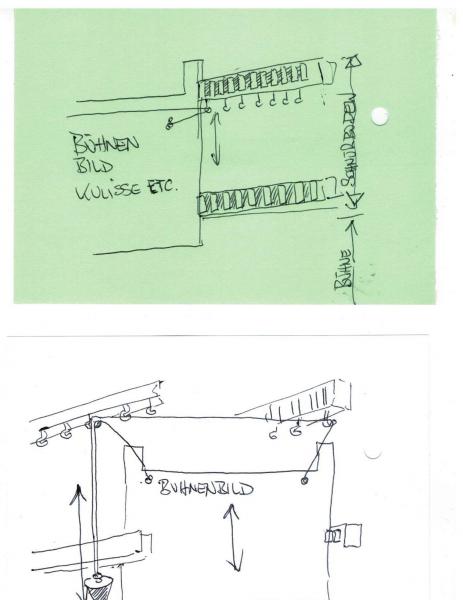 BÜHNEN
BILD
KULISSE ETC.
SCHNÜRBODEN
BÜHNE
BÜHNENBILD